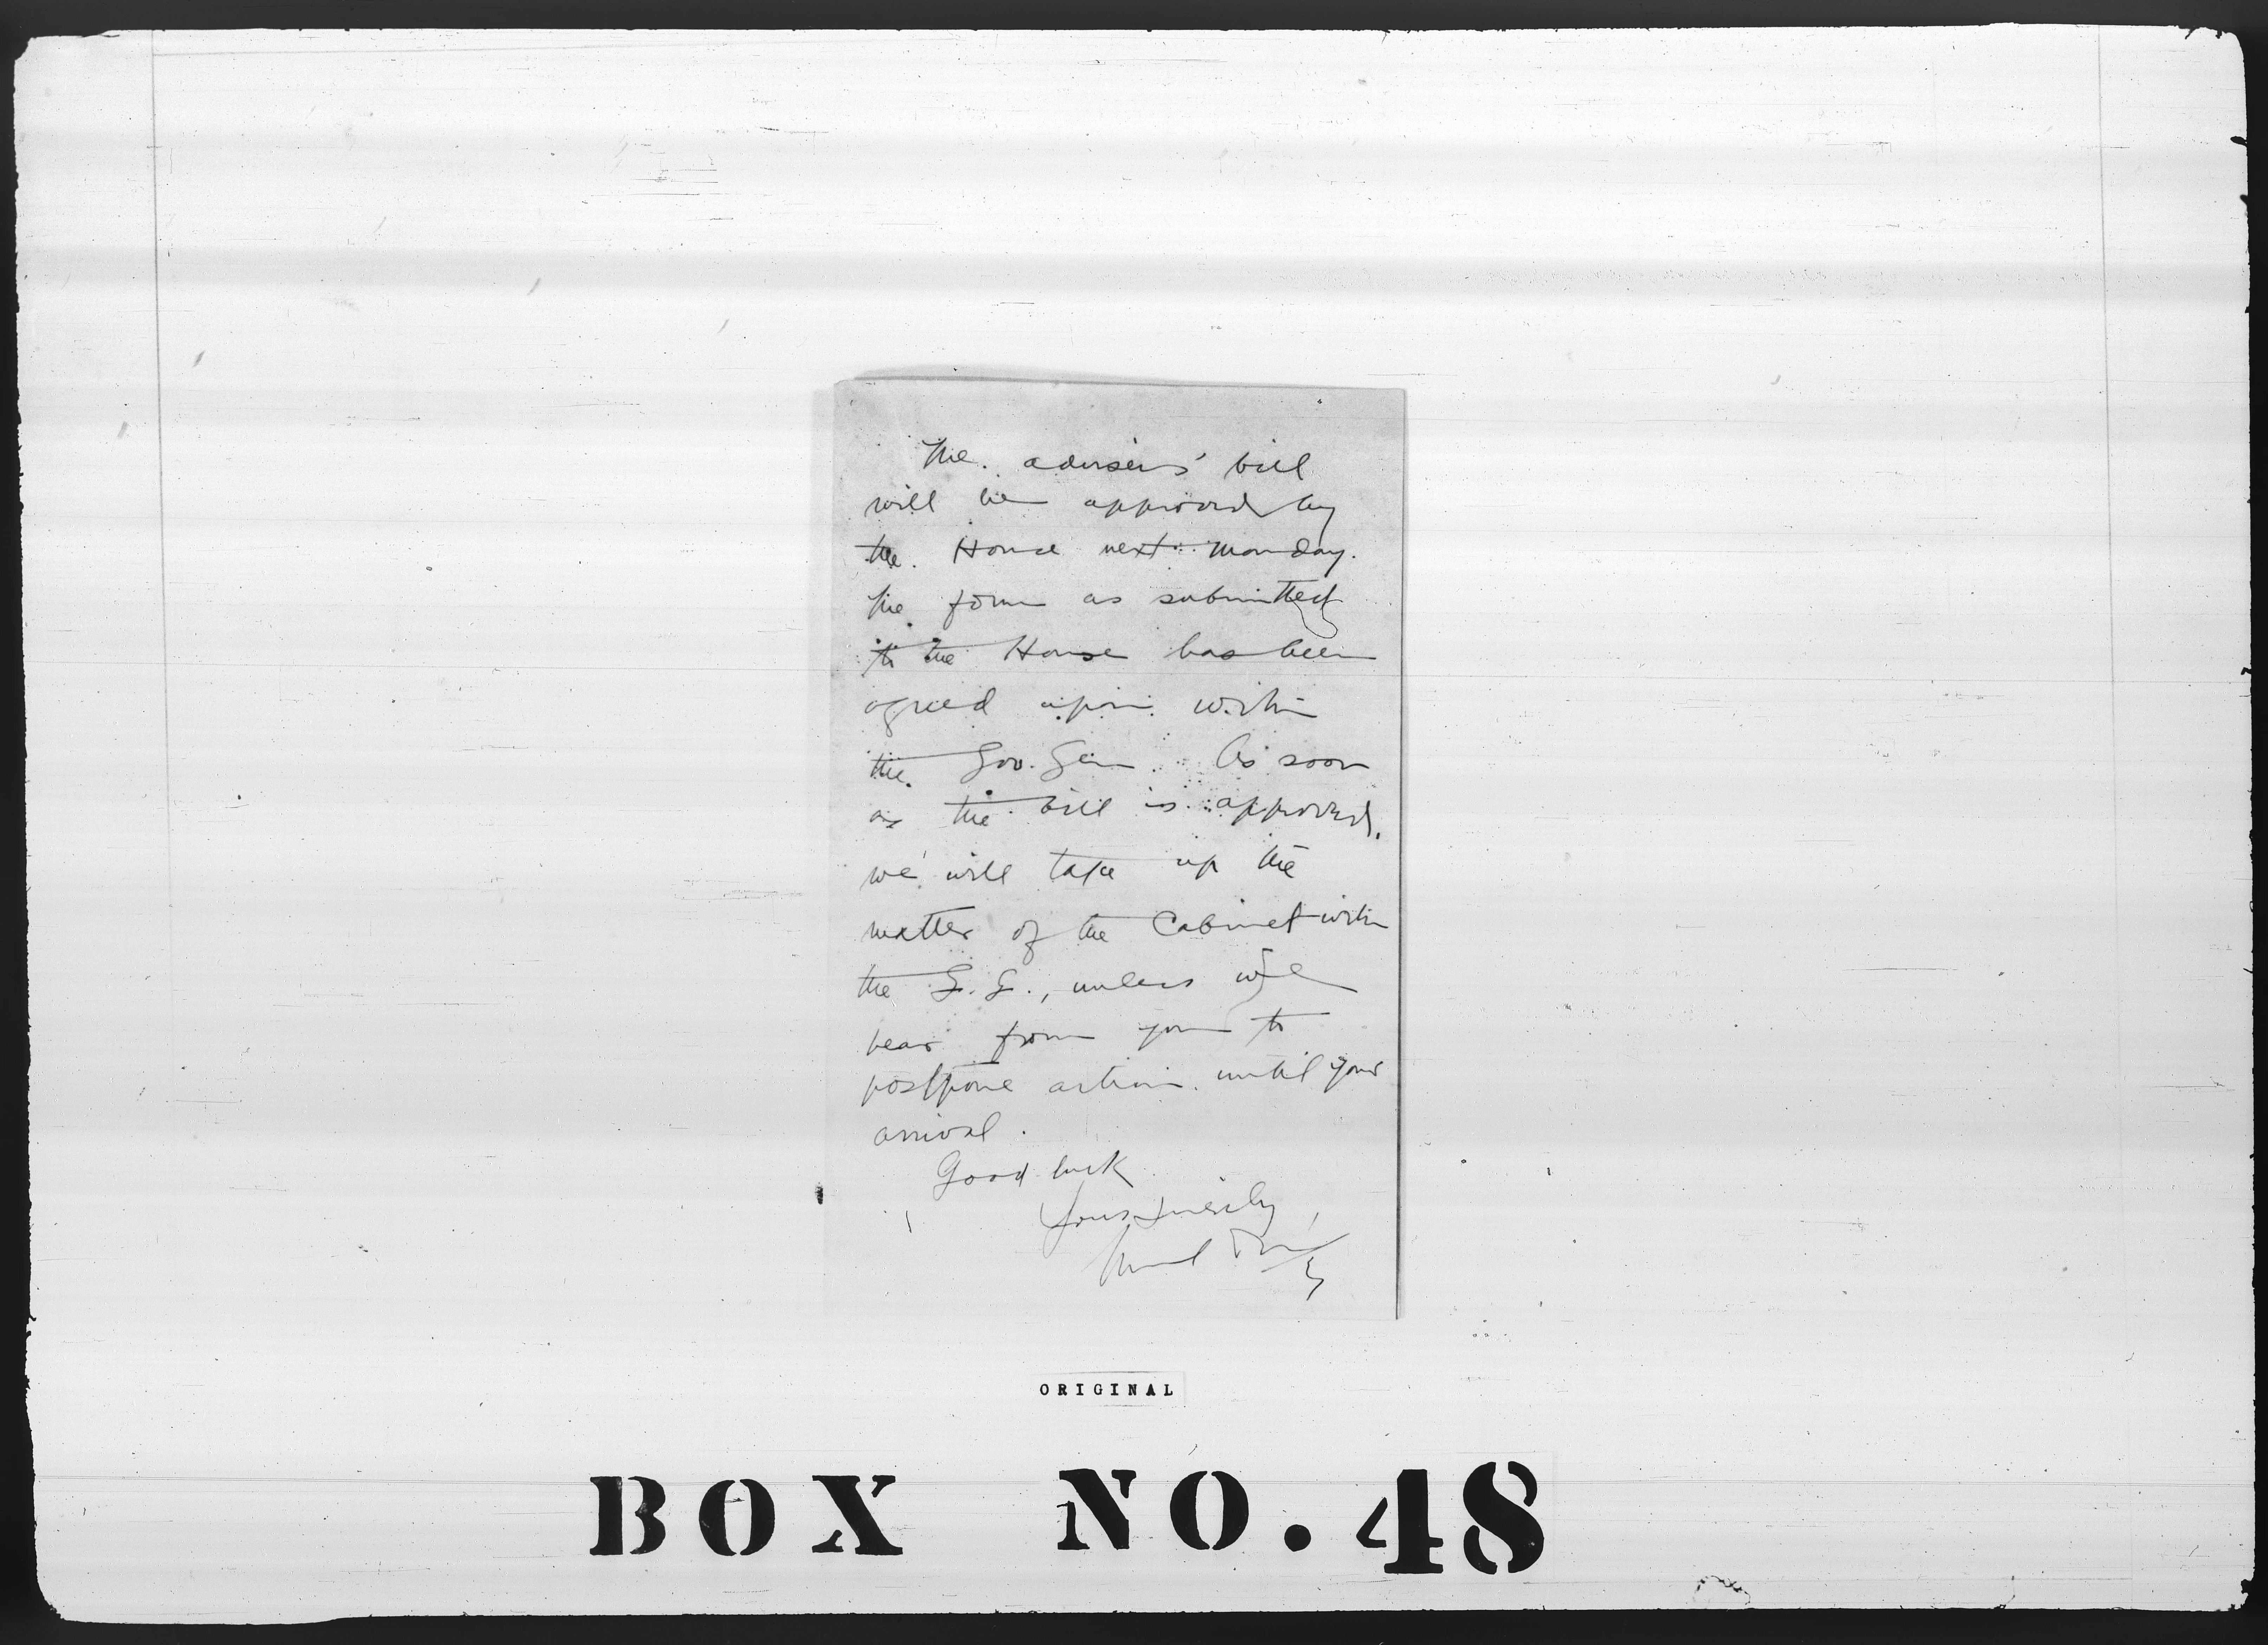 The advisers' bill
will be approved by
the House next Monday.
The form as submitted
to the House has been
agreed upon with
the Gov. Gen. As soon
as the bill is approved,
we will take up the
matter of the Cabinet with
the G. G., unless we
hear from you to
postpone action until your
arrival.
Good luck
Yours sincerely,
ORIGINAL
BOX NO. 48